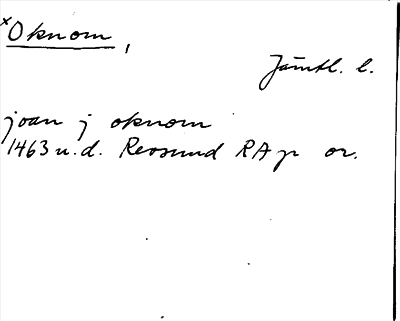 x Oknom,
Jämtl. l.
joan j oknom
1463 u.d. Revsund RAp or.